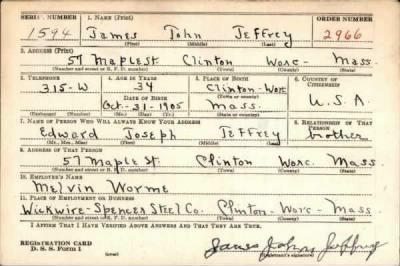 SERIAL NUMBER 1. NAME (Print) ORDER NUMBER
1594 James John Jeffrey 2966
(First) (Middle) (Last)
2. ADDRESS (Print)
57 Maple St. Clinton Worc. Mass.
(Number and street or R. F. D. number) (Town) (County) (State)
3. TELEPHONE 4. AGE IN YEARS 5. PLACE OF BIRTH 6. COUNTRY OF CITIZENSHIP
315-W 34 Clinton-Worc
DATE OF BIRTH (Town) (County)
Oct.-31-1905 Mass. U.S.A
(Exchange) (Number) (Mo.) (Day) (Yr.) (State or country)
7. NAME OF PERSON WHO WILL ALWAYS KNOW YOUR ADDRESS 8. RELATIONSHIP OF THAT PERSON
Edward Joseph Jeffrey brother
(Mr., Mrs., Miss) (First) (Middle) (Last)
9. ADDRESS OF THAT PERSON
57 Maple St. Clinton Worc. Mass
(Number and street or R. F. D. number) (Town) (County) (State)
10. EMPLOYER'S NAME
Melvin Worme
11. PLACE OF EMPLOYMENT OR BUSINESS
Wickwire-Spencer Steel Co. Clinton-Worc-Mass.
(Number and street or R. F. D. number) (Town) (County) (State)
I AFFIRM THAT I HAVE VERIFIED ABOVE ANSWERS AND THAT THEY ARE TRUE.
REGISTRATION CARD
D. S. S. Form 1 (over) James John Jeffrey
(Registrant's signature)